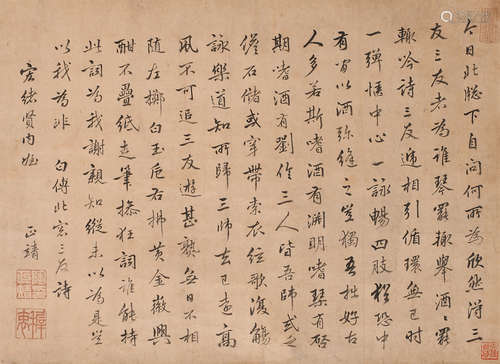 今日北牕下自問何所為欣然得三
友三友者為誰琴罷輒舉酒酒罷
輒吟詩三友遞相引循環無已時
一彈愜中心一詠暢四肢猶恐中
有間以酒弥縫之豈獨吾拙好古
人多若斯嗜酒有淵明嗜琴有啓
期嗜酒有劉伶三人皆吾師或乏
儋石儲或穿帶索衣絃歌復觴
詠樂道知所歸三師去已遠高
風不可追三友遊甚熟無日不相
隨左擲白玉卮右拂黃金徽興
酣不疊紙走筆操狂詞誰能持
此詞為我謝親知縱未以為是豈
以我為非 白傅北窓三友詩
宏緒賢内姪 正靖